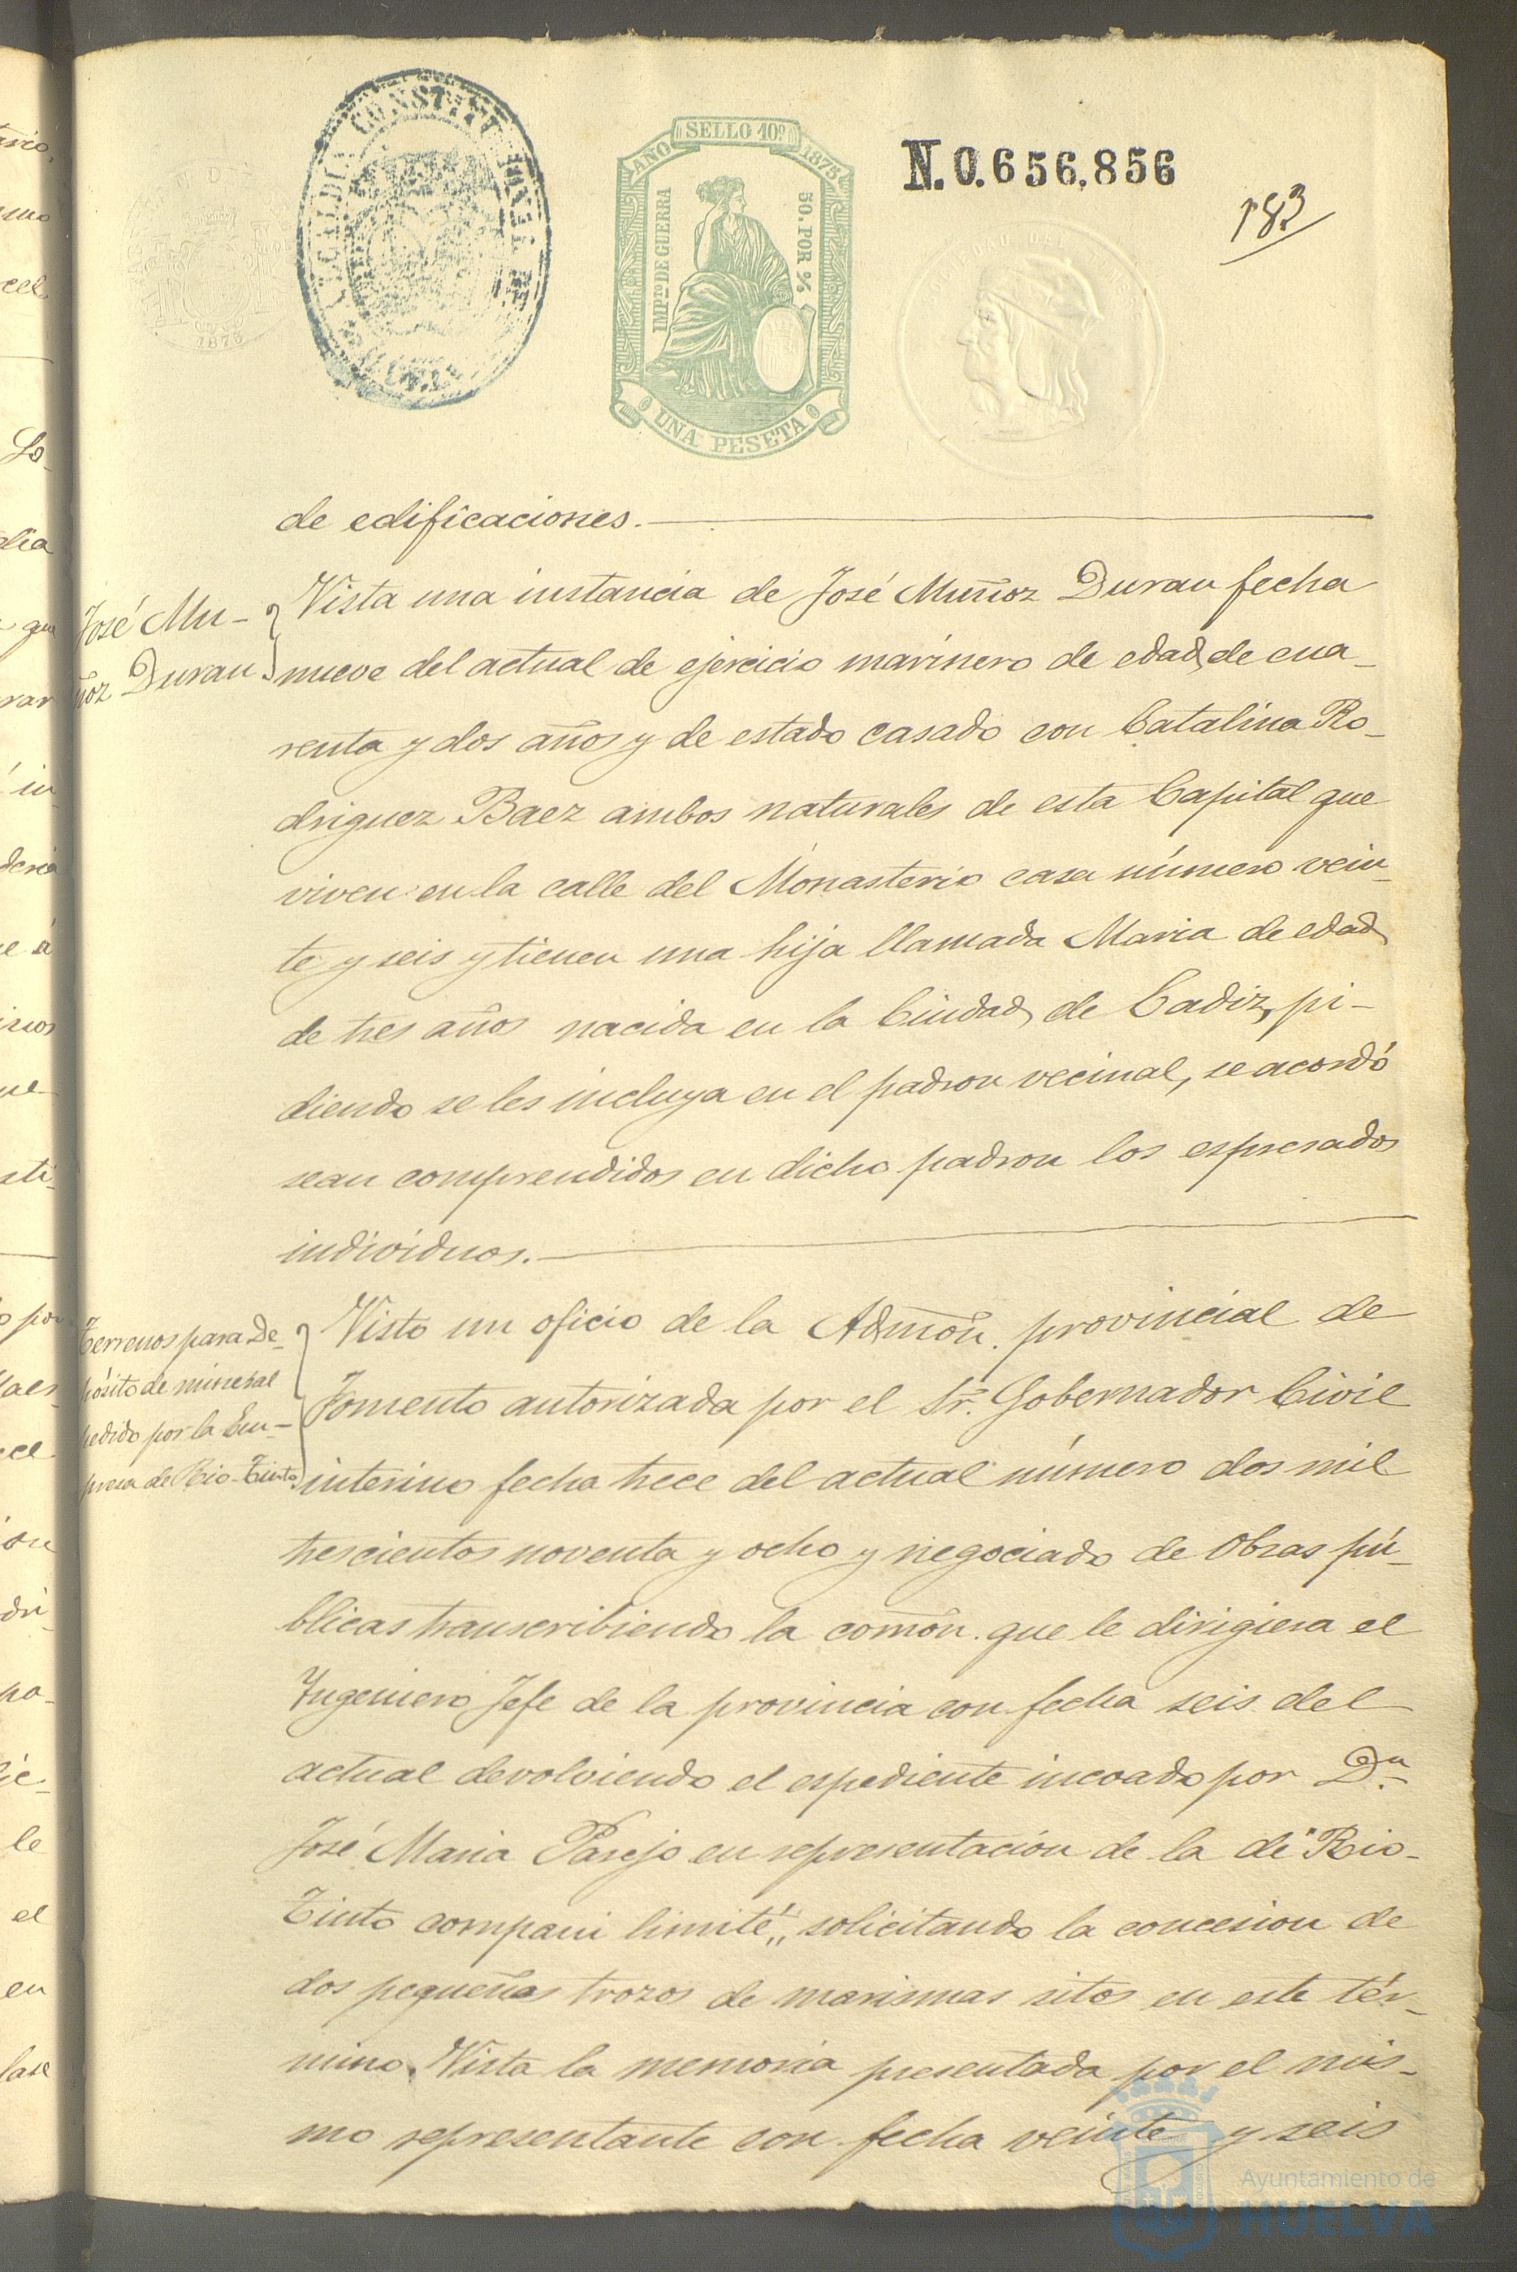 ALCALDIA CONSTITUCIONAL DE
AÑO SELLO 10º 1875
IMPTO DE GUERRA
50 POR %
UNA PESETA
N.0.656,856
183
1875
de edificaciones.
José Mu-
ñoz Duran
Vista una instancia de José Muñoz Duran fecha
nueve del actual de ejercicio marinero de edad de cua-
renta y dos años y de estado casado con Catalina Ro-
driguez Baez ambos naturales de esta Capital que
viven en la calle del Monasterio casa número vein-
te y seis y tienen una hija llamada Maria de edad
de tres años nacida en la Ciudad de Cadiz, pi-
diendo se les incluya en el padron vecinal, se acordó
sean comprendidos en dicho padron los espresados
individuos.
Terrenos para de-
pósito de mineral
pedido por la Em-
presa de Rio-Tinto
Visto un oficio de la Admōn. provincial de
Fomento autorizada por el Sr. Gobernador Civil
interino fecha trece del actual número dos mil
trescientos noventa y ocho y negociado de Obras pú-
blicas transcribiendo la comōn. que le dirigiera el
Ingeniero Jefe de la provincia con fecha seis del
actual devolviendo el espediente incoado por Dn.
José Maria Parejo en representacion de la de "Rio-
Tinto compani limité„ solicitando la concesion de
dos pequeños trozos de marismas sitos en este tér-
mino. Vista la memoria presentada por el mis-
mo representante con fecha veinte y seis
Ayuntamiento de
HUELVA